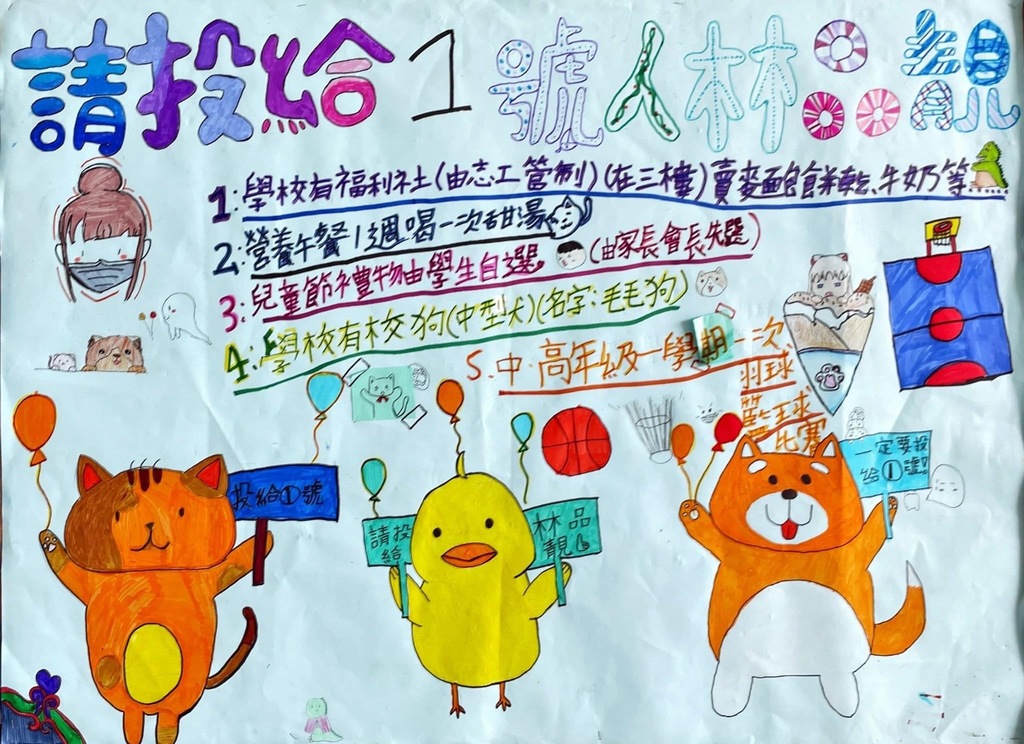 請投給1號人林品靚
1:學校有福利社(由志工管制)(在三樓)賣麥麵包餅乾、牛奶等
2:營養午餐1週喝一次甜湯
3:兒童節禮物由學生自選(由家長會長先選)
4:學校有校狗(中型犬)(名字:毛毛狗)
5.中.高年級一學期一次
羽球
籃球
比賽
投給①號
請投
給
林品
靚
一定要投
給①號!